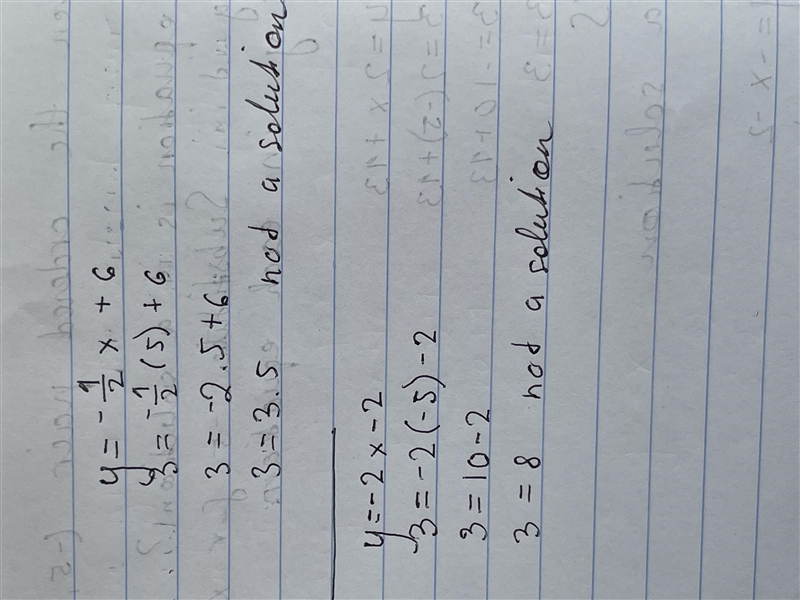 y = -1/2 x + 6
3 = -1/2 (5) + 6
3 = -2.5 + 6
3 = 3.5 not a solution
y = -2x - 2
3 = -2(-5) - 2
3 = 10 - 2
3 = 8 not a solution